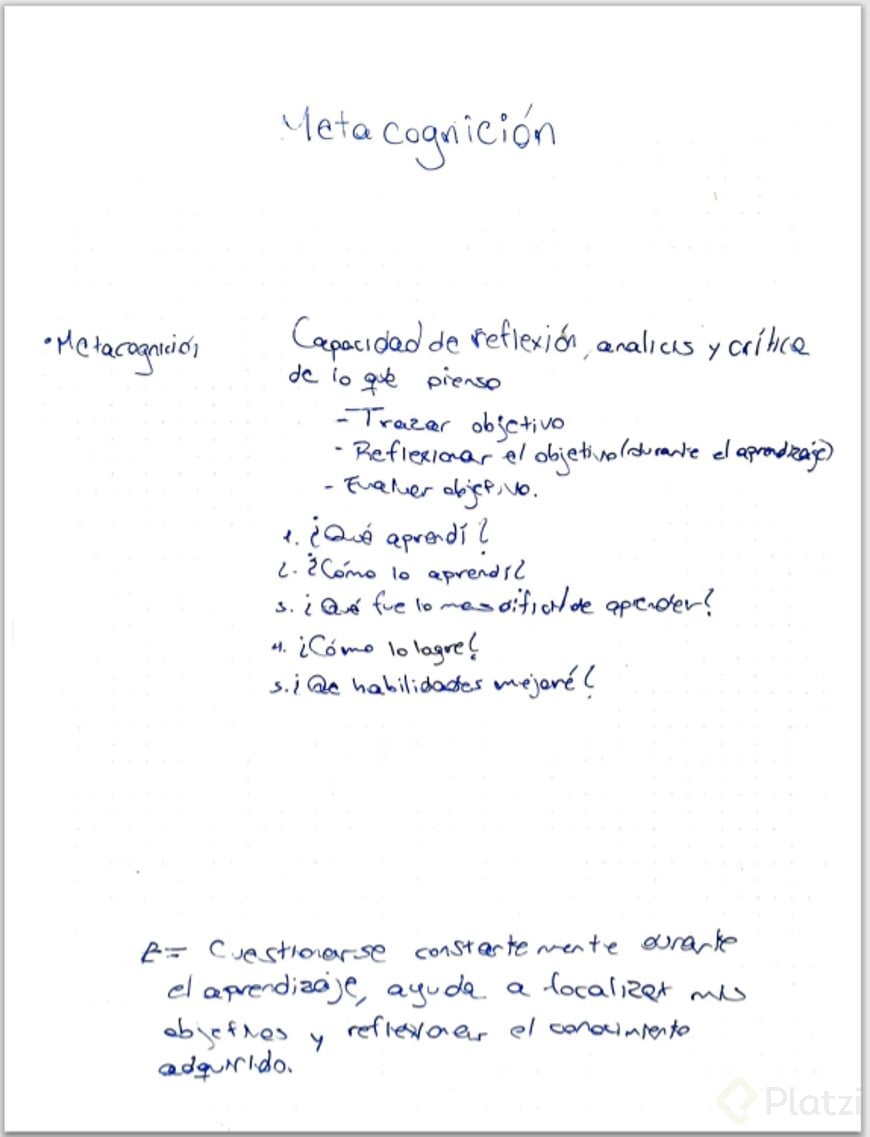 Metacognición
• Metacognición
Capacidad de reflexión, analicis y crítica
de lo que pienso
- Trazar objetivo
- Reflexionar el objetivo (durante el aprendizaje)
- Evaluar objetivo.
1. ¿Qué aprendí?
2. ¿Cómo lo aprendí?
3. ¿Qué fue lo mas dificil de aprender?
4. ¿Cómo lo logre?
5. ¿Que habilidades mejoré?
R= Cuestionarse constantemente durante
el aprendizaje, ayuda a focalizar mis
objetivos y reflexionar el conocimiento
adquirido.
Platzi